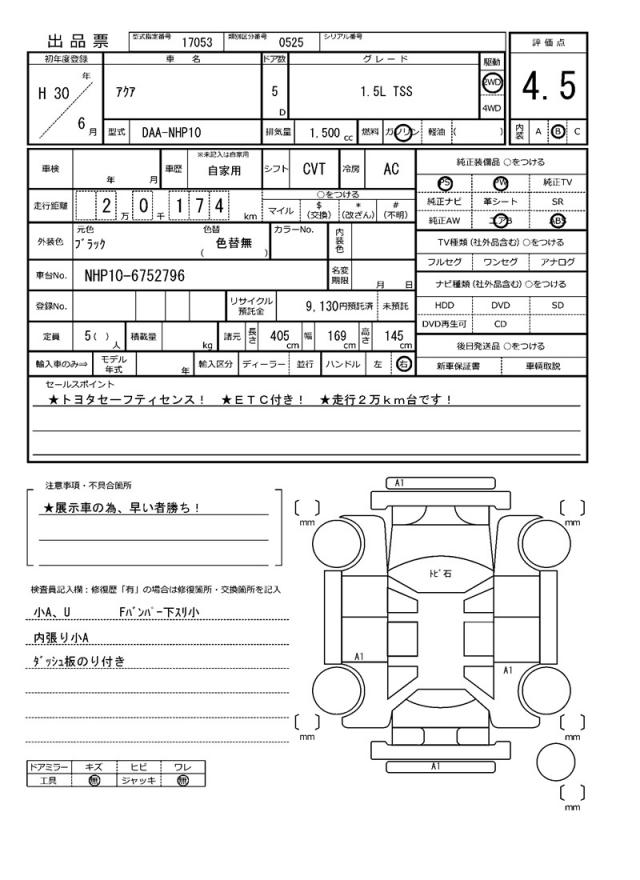 出品票 型式指定番号 17053 類別区分番号 0525 シリアル番号
評価点
4.5
内装 A B C
初年度登録 車名 ドア数 グレード 駆動
H 30 年 6 月 アクア 5 D 1.5L TSS 2WD 4WD
型式 DAA-NHP10 排気量 1.500 cc 燃料 ガソリン 軽油 ( )
車検 年 月 車歴 ※未記入は自家用 自家用 シフト CVT 冷房 AC
走行距離 2 万 0 千 1 7 4 km ○をつける
マイル $ (交換) * (改ざん) # (不明)
外装色 元色 ブラック 色替 色替無 ( ) カラーNo. 内装色
車台No. NHP10-6752796 名変期限 月 日
登録No. リサイクル預託金 9,130円預託済 未預託
定員 5( ) 人 積載量 kg 諸元 長さ 405 cm 幅 169 cm 高さ 145 cm
輸入車のみ⇒ モデル年式 年 輸入区分 ディーラー 並行 ハンドル 左 右
純正装備品 ○をつける
PS PW 純正TV
純正ナビ 革シート SR
純正AW エアB ABS
TV種類(社外品含む)○をつける
フルセグ ワンセグ アナログ
ナビ種類(社外品含む)○をつける
HDD DVD SD
DVD再生可 CD
後日発送品 ○をつける
新車保証書 車輌取説
セールスポイント
★トヨタセーフティセンス! ★ETC付き! ★走行2万km台です!
注意事項・不具合箇所
★展示車の為、早い者勝ち!
検査員記入欄:修復歴「有」の場合は修復箇所・交換箇所を記入
小A、U Fバンパー下スリ小
内張り小A
ダッシュ板のり付き
ドアミラー キズ ヒビ ワレ
工具 無 ジャッキ 無
A1
mm
mm
トビ石
A1
A1
mm
mm
A1
mm